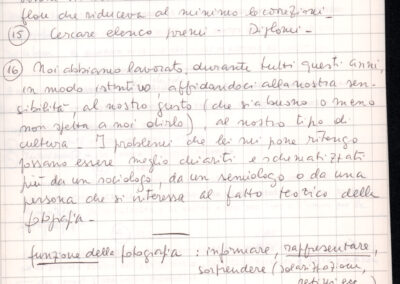 flou che riduceva al minimo le correzioni_
(15) Cercare elenco premi - Diplomi -
(16) Noi abbiamo lavorato, durante tutti questi anni,
in modo istintivo, affidandoci alla nostra sen-
sibilità, al nostro gusto (che sia buono o meno
non spetta a noi dirlo), al nostro tipo di
cultura - I problemi che lei mi pone ritengo
possano essere meglio chiariti e schematizzati
più da un sociologo, da un semiologo o da una
persona che si interessa al fatto teorico della
fotografia -
funzione della fotografia : informare, rappresentare,
sorprendere (solarizzazioni,